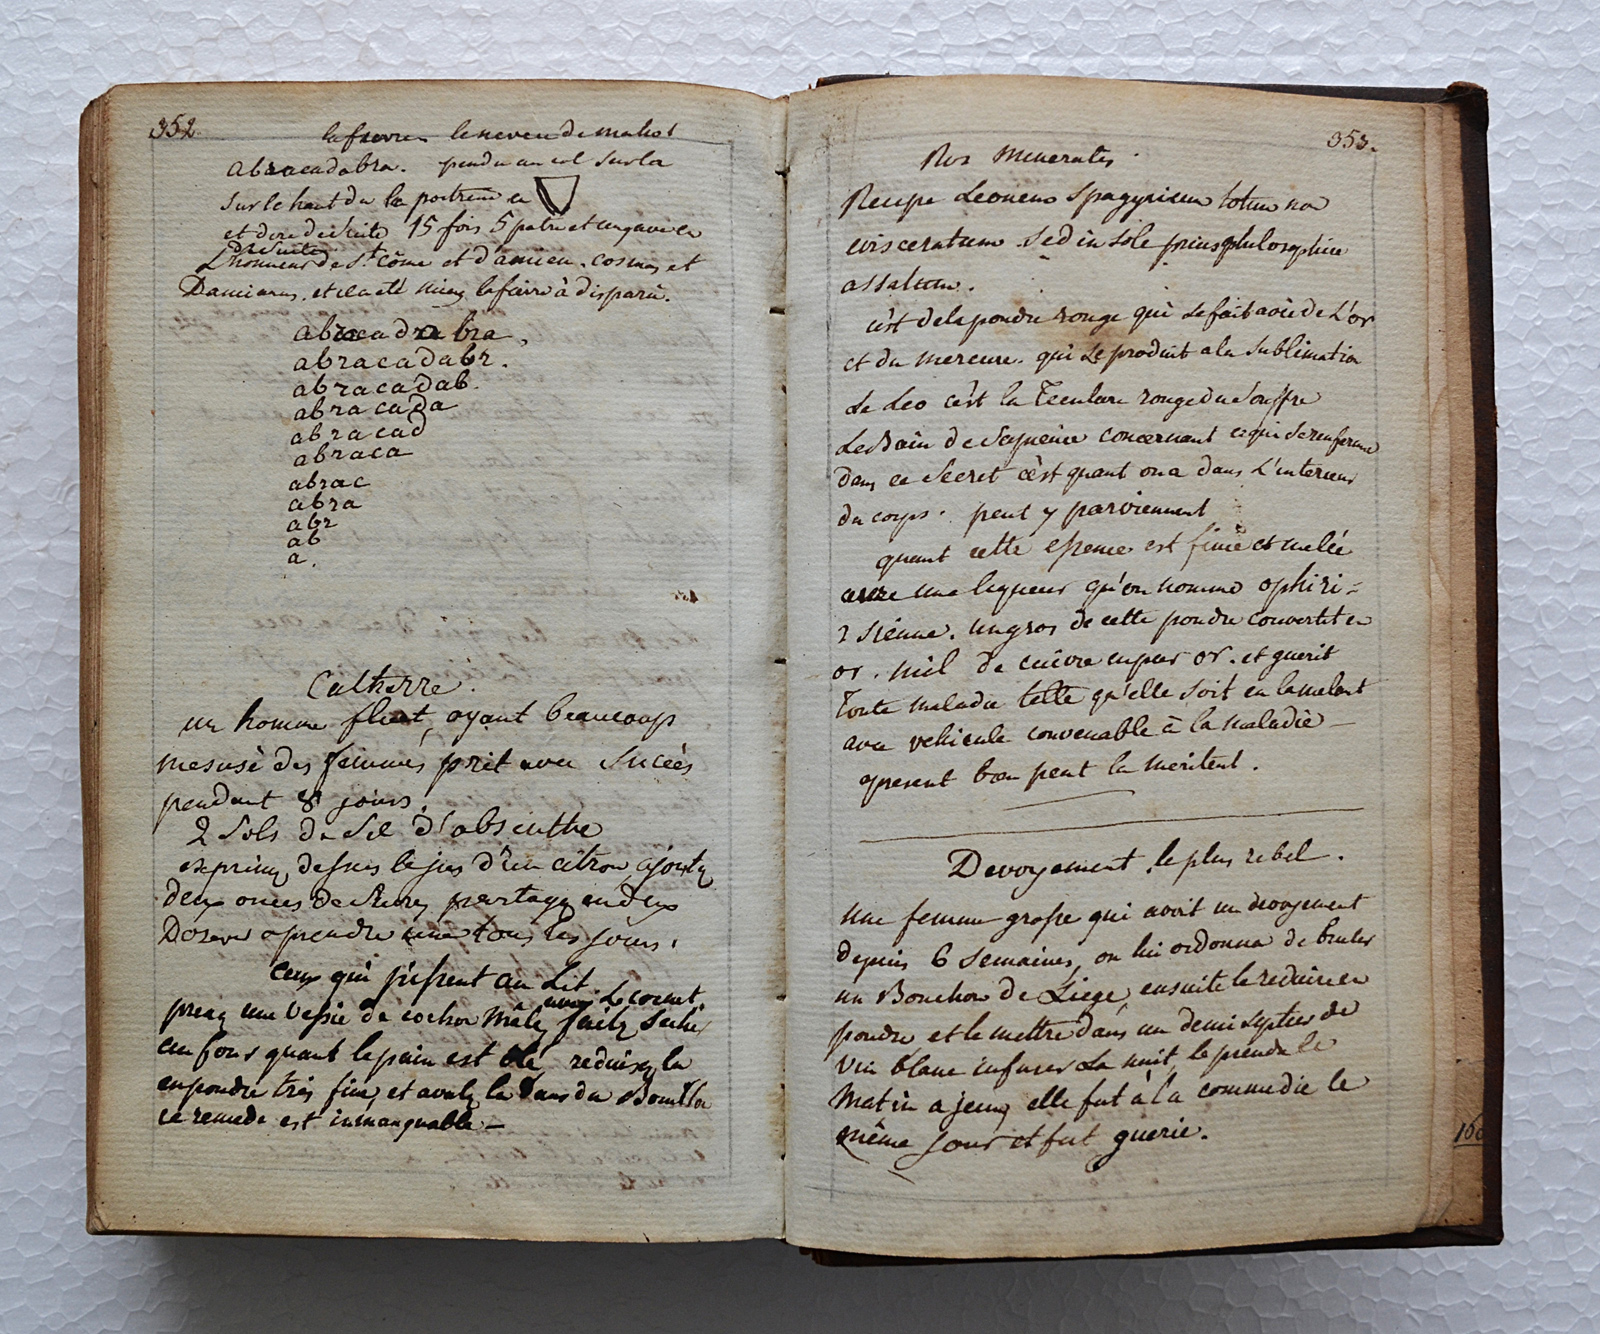 352
la fievre le neveu de mahot
abracadabra. pendu au col sur la
sur le haut de la poitrine en
et dire de suite 15 fois 5 pater et un gave en
de suite
L'honneur de St. côme et damien. cosmas et
Damianus. et il a été mieux la fievre à disparu.
abracadabra,
abracadabr.
abracadab.
abracada
abracad
abraca
abrac
abra
abr
ab
a.
Catherre.
un homme fluet, ayant beaucoup
mesusé des femmes prit avec succès
pendant 8 jours.
2 sols de sel d'absinthe
exprimez dessus le jus d'un citron, ajoutez
deux onces de sucre, partagez en deux
Doses a prendre une tous les jours.
ceux qui pissent au Lit.
avec le cornet.
prenez une vessie de cochon Mâle, faitez secher
au four quant le pain est oté, reduisez la
en poudre très fine, et avalez la dans du Bouillon
ce remede est inmanquable —
353.
Ros Minerales.
Recipe Leonem spagyricum totum non
evisceratum sed in sole prius philosophice
assatum.
c'est de la poudre rouge qui se fait avec de L'or
et du mercure. qui se produit a la sublimation
Le Leo c'est la rouge du souffre
Le Bain de concernant ce qui se renferme
dans ce secret c'est quant on a dans L'interieur
du corps. peut y parviennent
quant cette essence est finie et melée
avec une liqueur qu'on nomme ophiri=
sienne. un gros de cette poudre convertit en
or. mil de cuivre en pur or. et guerit
toute maladie telle qu'elle soit en la melant
avec vehicule convenable à la maladie —
apresent bon peut la meritent.
Devoyement le plus rebel.
une femme grosse qui avoit un devoyement
depuis 6 semaines, on lui ordonna de bruler
un Bouchon de Liege, ensuite le reduire en
poudre et le mettre dans un demi septier de
vin blanc infuser La nuit, le prendre le
Matin a jeun, elle fut à la commedie le
même jour et fut guerie.